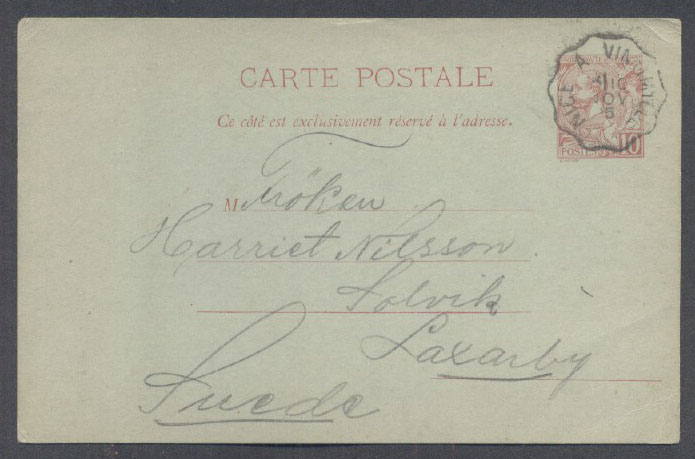 CARTE POSTALE
Ce côté est exclusivement réservé à l'adresse.
NICE A VIN
10
POSTES
M Fröken
Harriet Nilsson.
Solvik
Laxarby
Suede